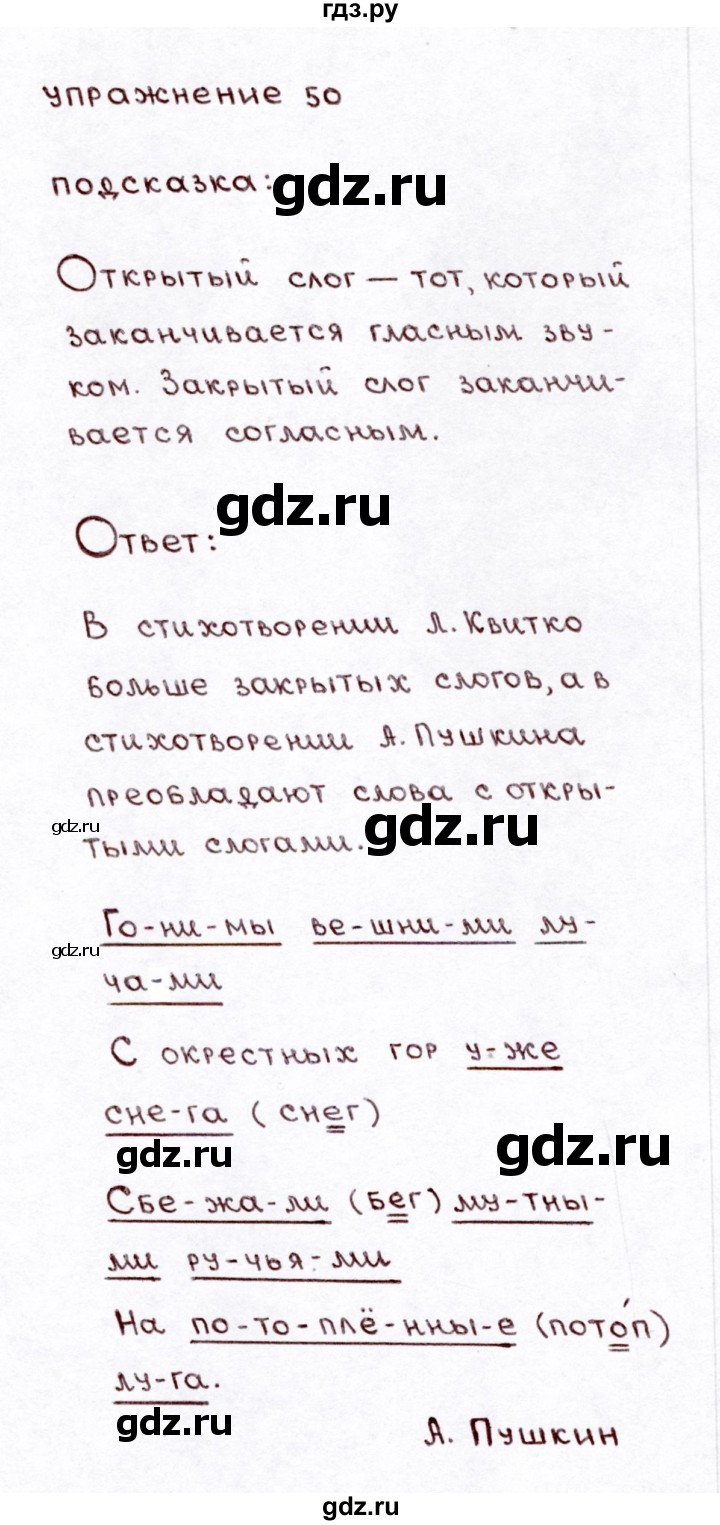 гдз.ру
упражнение 50
подсказка:
gdz.ru
Открытый слог — тот, который
заканчивается гласным зву-
ком. Закрытый слог заканчи-
вается согласным.
gdz.ru
Ответ:
В стихотворении Л. Квитко
больше закрытых слогов, а в
стихотворении А. Пушкина
преобладают слова с откры-
gdz.ru
тыми слогами.
gdz.ru
Го-ни-мы ве-шни-ми лу-
gdz.ru
ча-ми
С окрестных гор у-же
сне-га (снег)
gdz.ru
gdz.ru
Сбе-жа-ли (бег) му-тны-
ми ру-чья-ми
На по-то-плё-нны-е (пото́п)
лу-га.
gdz.ru
А. Пушкин
gdz.ru